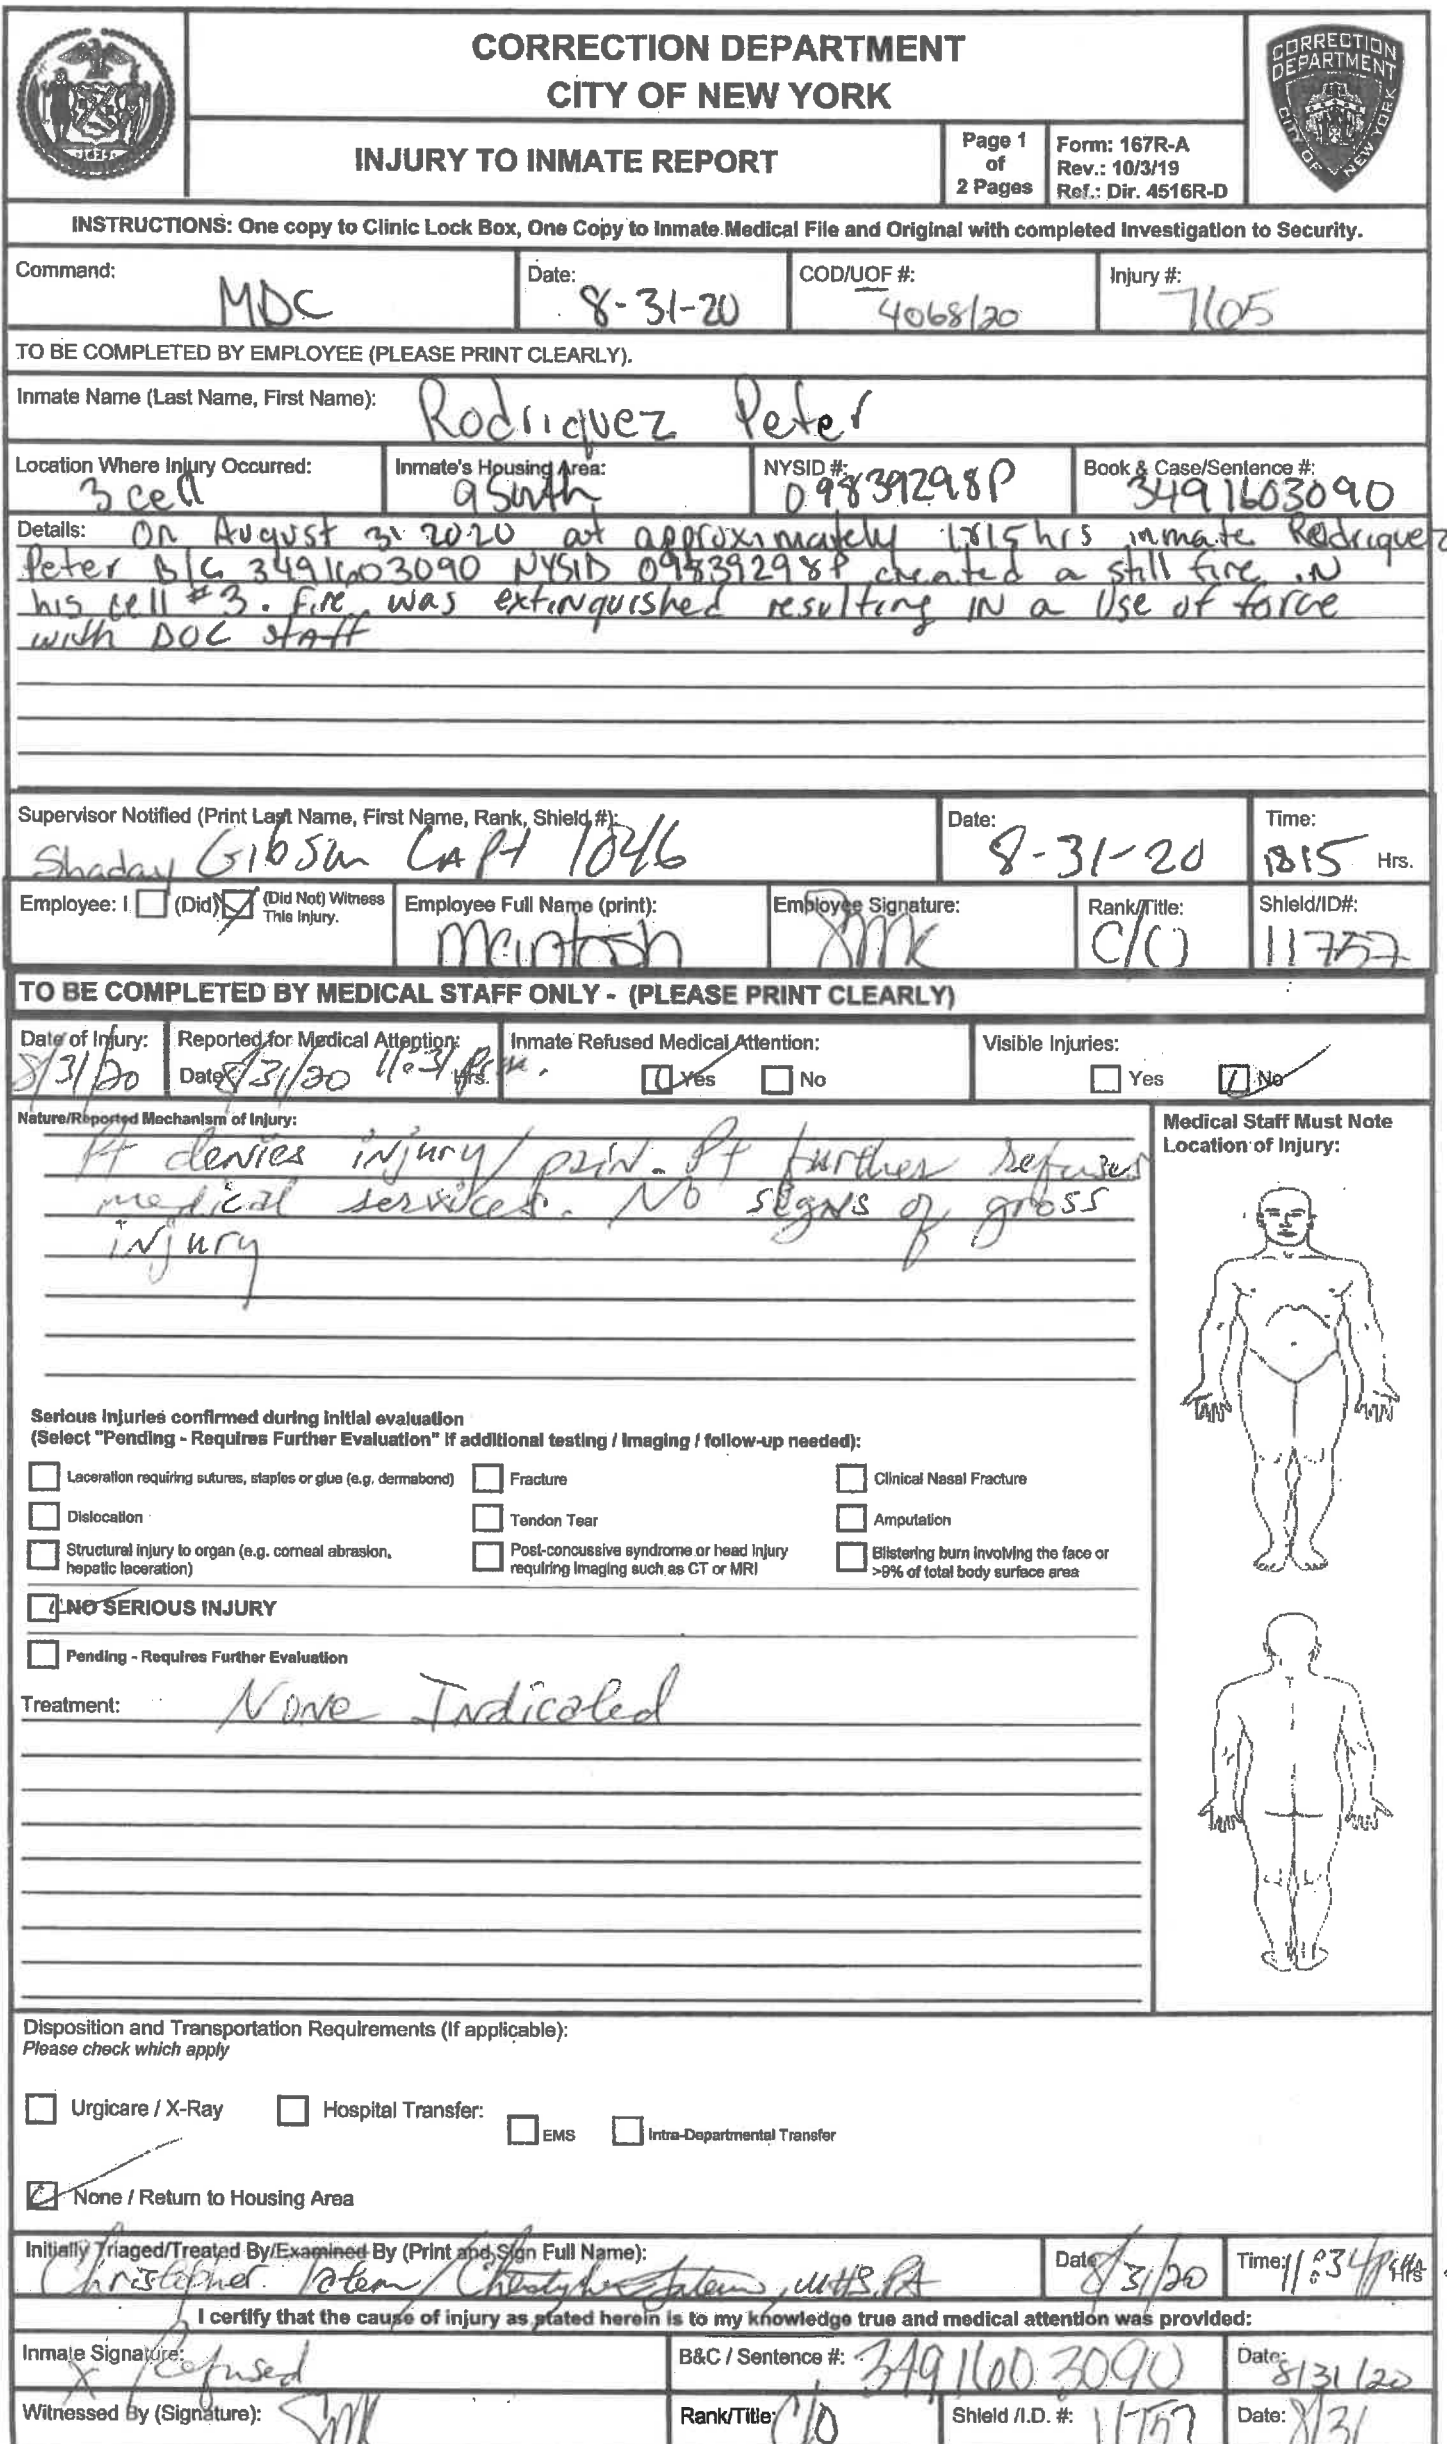 CORRECTION DEPARTMENT
CITY OF NEW YORK
CORRECTION
DEPARTMENT
CITY OF NEW YORK
INJURY TO INMATE REPORT
Page 1
of
2 Pages
Form: 167R-A
Rev.: 10/3/19
Ref.: Dir. 4516R-D
INSTRUCTIONS: One copy to Clinic Lock Box, One Copy to Inmate Medical File and Original with completed Investigation to Security.
Command: MDC Date: 8-31-20 COD/UOF #: 4068/20 Injury #: 7105
TO BE COMPLETED BY EMPLOYEE (PLEASE PRINT CLEARLY).
Inmate Name (Last Name, First Name): Rodriquez Peter
Location Where Injury Occurred: 3 cell Inmate's Housing Area: 9 South NYSID #: 09839298P Book & Case/Sentence #: 3491603090
Details: On August 31 2020 at approximately 1815hrs inmate Rodriquez
Peter B/C 3491603090 NYSID 09839298P created a still fire iN
his cell #3. Fire was extinquished resulting IN a Use of force
with DOC staff
Supervisor Notified (Print Last Name, First Name, Rank, Shield #): Shaday Gibson CAPt 1046 Date: 8-31-20 Time: 1815 Hrs.
Employee: I (Did) (Did Not) Witness
This Injury.
Employee Full Name (print): Mcintosh Employee Signature: Rank/Title: C/O Shield/ID#: 11757
TO BE COMPLETED BY MEDICAL STAFF ONLY - (PLEASE PRINT CLEARLY)
Date of Injury: 8/31/20 Reported for Medical Attention: Date 8/31/20 11:31 pm. Hrs. Inmate Refused Medical Attention: Yes No Visible Injuries: Yes No
Nature/Reported Mechanism of Injury:
Pt denies injury/pain. Pt further refuses
medical services. No signs of gross
injury
Medical Staff Must Note
Location of Injury:
Serious Injuries confirmed during initial evaluation
(Select "Pending - Requires Further Evaluation" if additional testing / imaging / follow-up needed):
Laceration requiring sutures, staples or glue (e.g. dermabond) Fracture Clinical Nasal Fracture
Dislocation Tendon Tear Amputation
Structural injury to organ (e.g. corneal abrasion,
hepatic laceration)
Post-concussive syndrome or head injury
requiring imaging such as CT or MRI
Blistering burn involving the face or
>9% of total body surface area
NO SERIOUS INJURY
Pending - Requires Further Evaluation
Treatment: None Indicated
Disposition and Transportation Requirements (If applicable):
Please check which apply
Urgicare / X-Ray Hospital Transfer: EMS Intra-Departmental Transfer
None / Return to Housing Area
Initially Triaged/Treated By/Examined By (Print and Sign Full Name): Christopher Tatem / Christopher Tatem, MHS, PA Date 8/31/20 Time: 11:34 pm Hrs
I certify that the cause of injury as stated herein is to my knowledge true and medical attention was provided:
Inmate Signature: X Refused B&C / Sentence #: 3491603090 Date: 8/31/20
Witnessed By (Signature): Rank/Title: C/O Shield /I.D. #: 11757 Date: 8/31